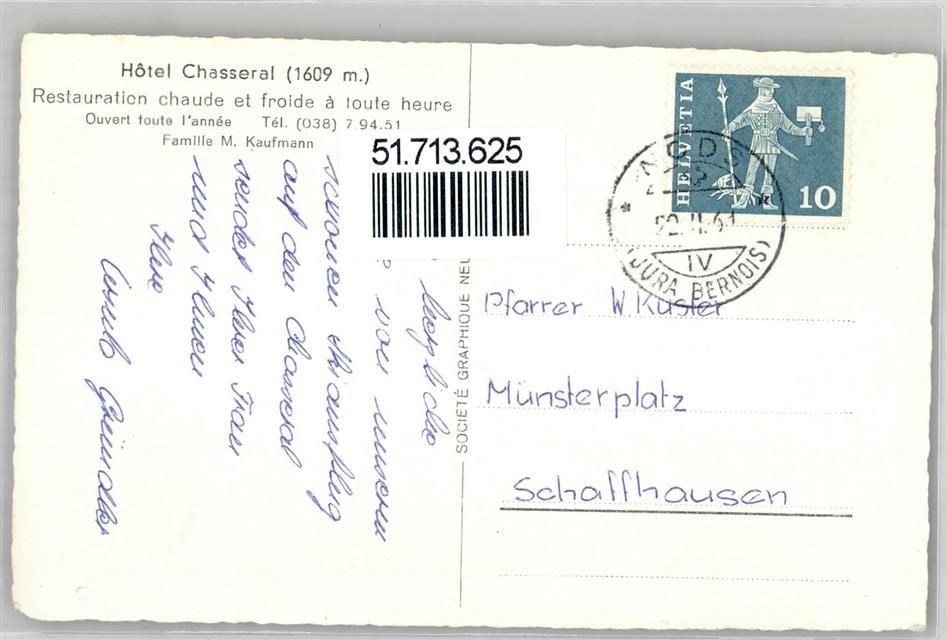 Hôtel Chasseral (1609 m.)
Restauration chaude et froide à toute heure
Ouvert toute l'année Tél. (038) 7.94.51
Famille M. Kaufmann
51.713.625
HELVETIA
10
NODS
IV
(JURA BERNOIS)
SOCIETÉ GRAPHIQUE NEU
Herzliche
von unserem
schönen Skiausflug
auf den Chasseral
sendet Ihrer Frau
und Ihnen
Ihre
Ursula
Pfarrer W. Küster
Münsterplatz
Schaffhausen